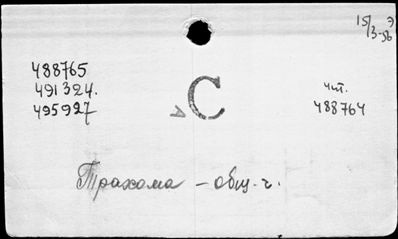 15/3-56
Э
488765
491324.
495927
С
А
чит.
488764
Трахома – общ. ч.